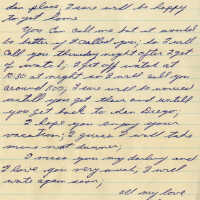 den place, I sure will be happy
to get home
You can call me but it would
be better if I called you, so I will
call you thursday night after I get
off watch, I get off watch at
10:30 at night so I will call you
around 11:00, I sure will be nervous
untill you get there and untill
you get back to San Diego,
I hope you enjoy your
vacation; I guess I will take
mine next summer,
I miss you my darling and
I love you very much, I will
write again soon,
all my love